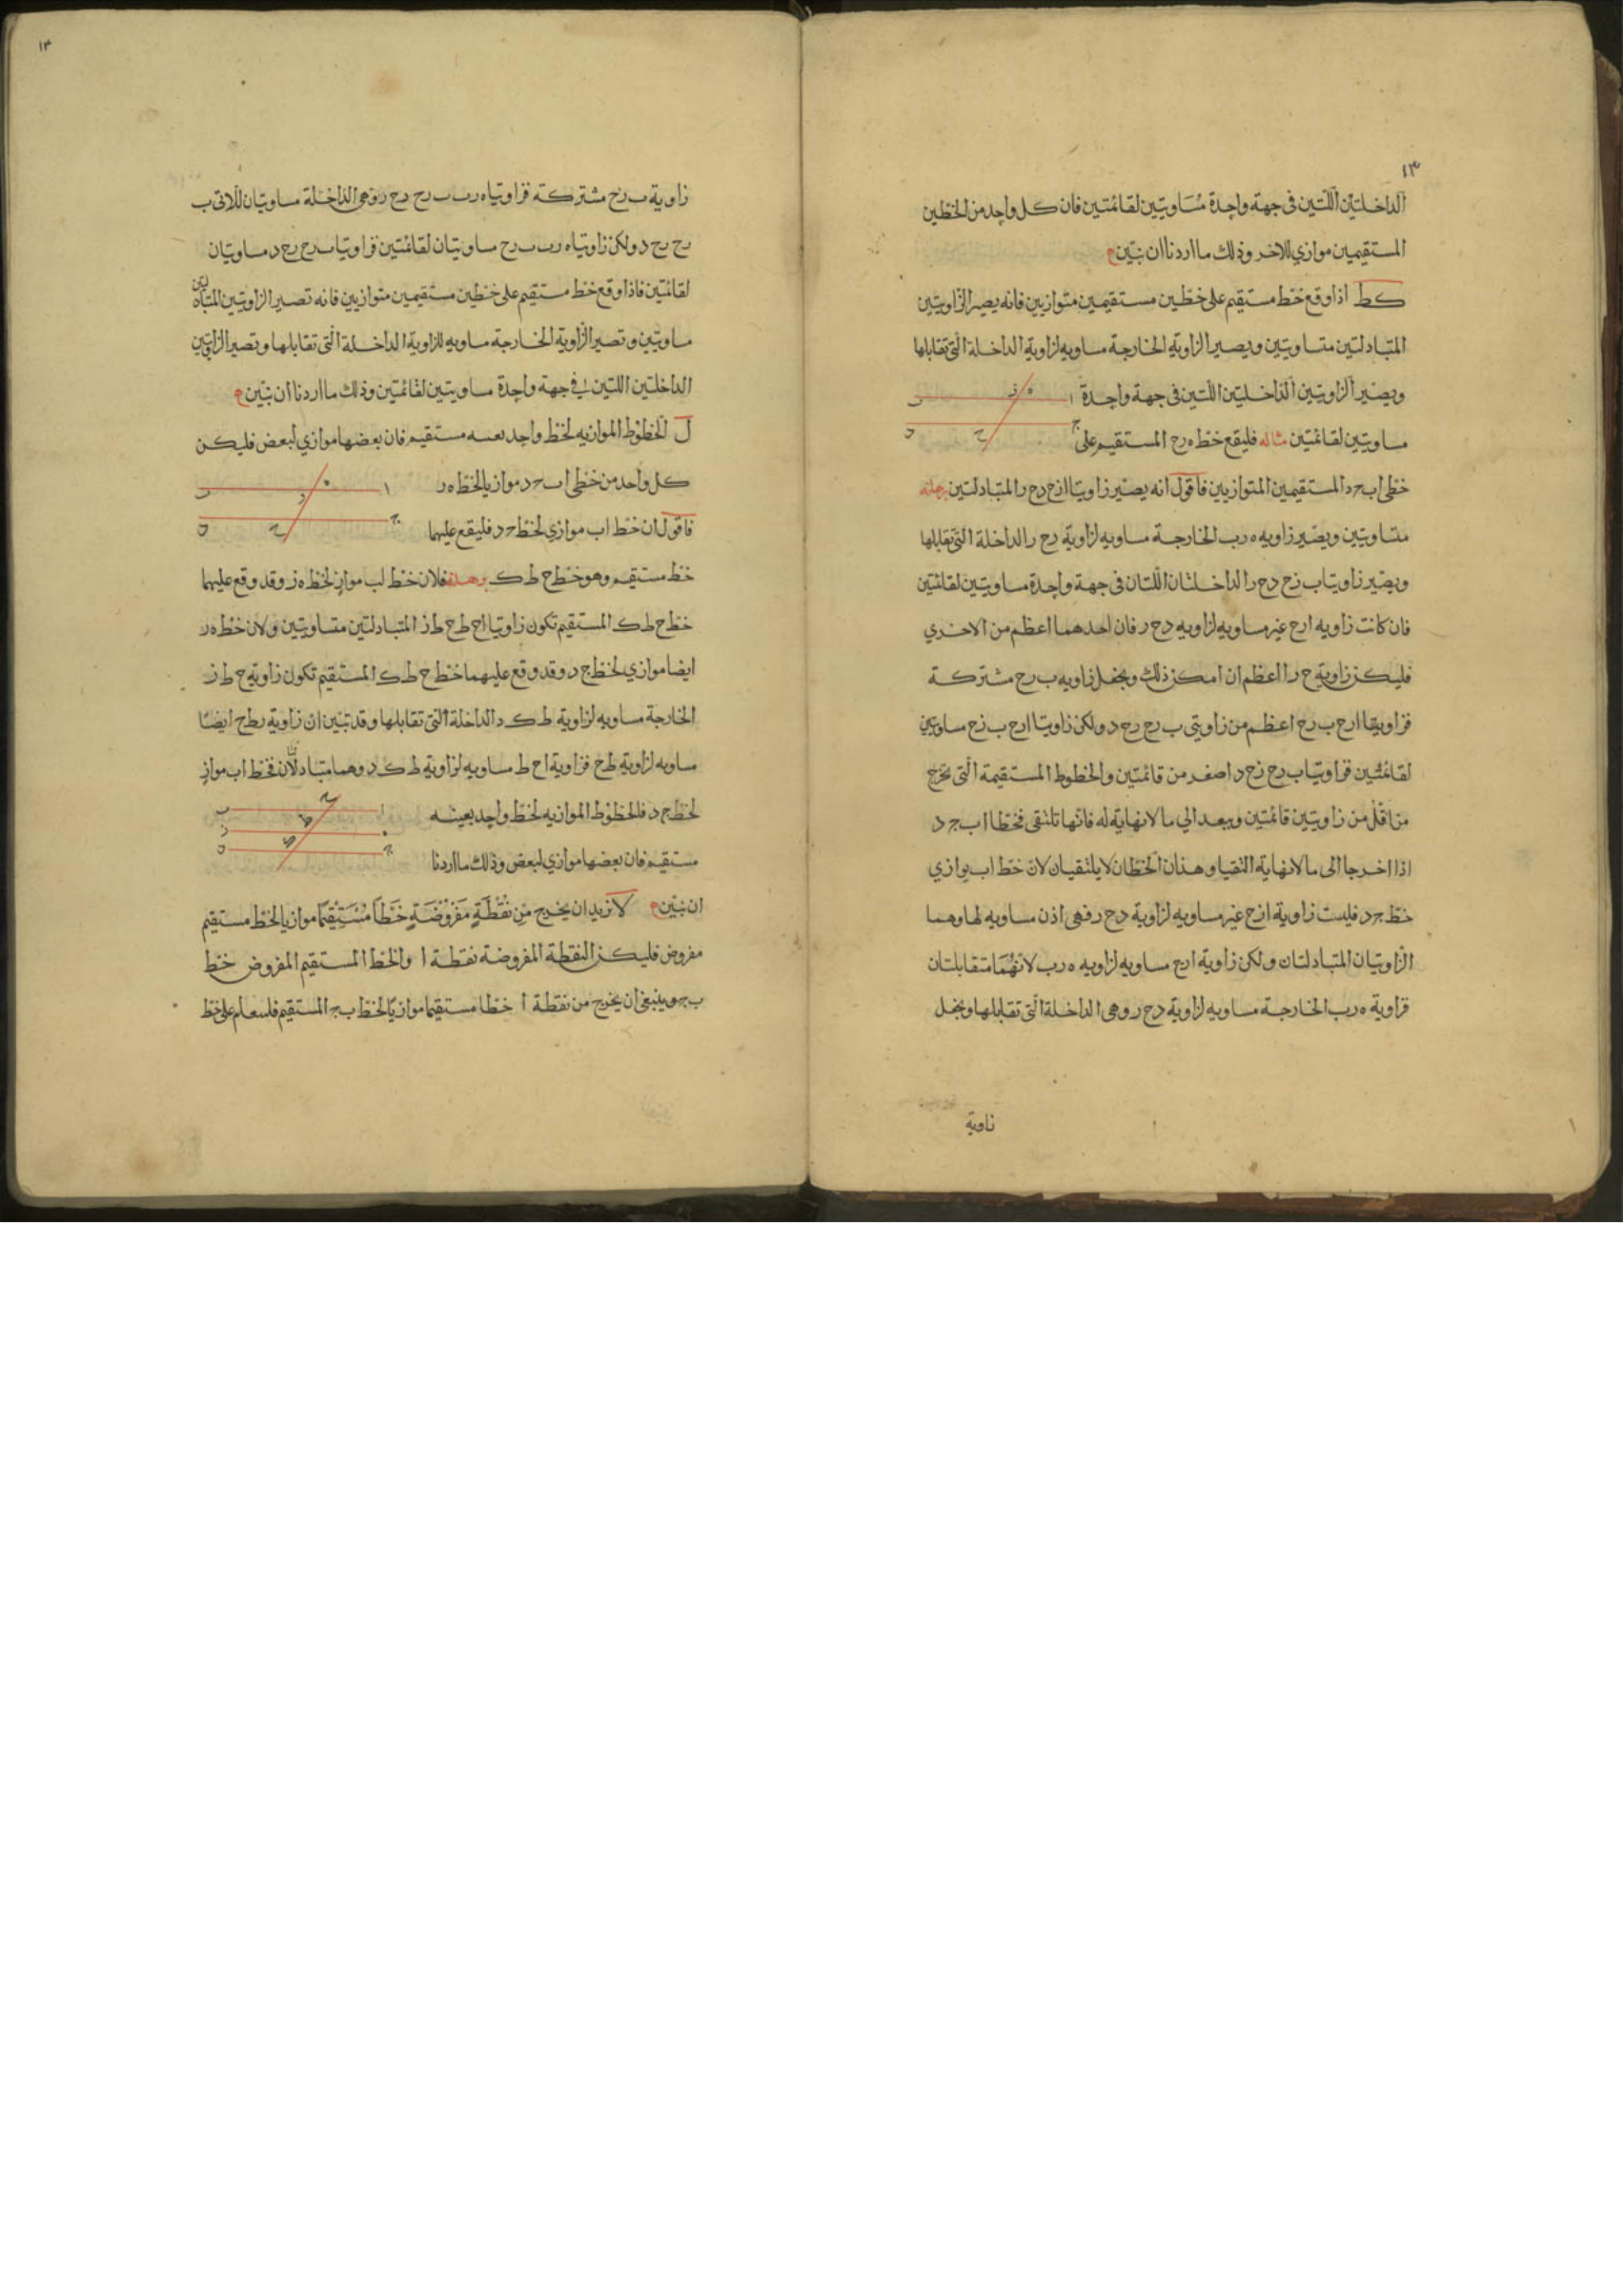 ١٣
الداخلتين اللتين فى جهة واحدة مساويتين لقائمتين فان كل واحد من الخطين
المستقيمين موازي للاخر وذلك ما اردنا ان نبين
كط اذا وقع خط مستقيم على خطين مستقيمين متوازيين فانه يصير الزاويتين
المتبادلتين متساويتين ويصير الزاوية الخارجة مساويه لزاوية الداخلة التى تقابلها
ويصير الزاويتين الداخليتين اللتين فى جهة واحدة
مساويتين لقائمتين مثاله فليقع خط ه ر ح المستقيم على
ا ه ز ب
ج ح د
خطى اب ح د المستقيمين المتوازيين فاقول انه يصير زاويتا ا ر ح د ح ر المتبادلتين برهانه
متساويتين ويصير زاويه ه ر ب الخارجة مساويه لزاوية د ح ر الداخلة التى تقابلها
ويصير زاويتا ب ز ح د ح ر الداخلتان اللتان فى جهة واحدة مساويتين لقائمتين
فان كانت زاويه ا ر ح غير مساويه لزاويه د ح ر فان احدهما اعظم من الاخري
فليكن زاوية ح ر ا اعظم ان امكن ذلك ونجعل زاويه ب ر ح مشتركة
فزاويتا ا ر ح ب ر ح اعظم من زاويتى ب ر ح ر ح د ولكن زاويتا ا ر ح ب ز ح ساويتين
لقائمتين فزاويتا ب ر ح ز ح د اصغر من قائمتين والخطوط المستقيمة التى تخرج
من اقل من زاويتين قائمتين ويبعد الي ما لا نهاية له فانها تلتقى فخطا ا ب ج د
اذا اخرجا الى ما لا نهاية التقيا وهذان الخطان لا يلتقيان لان خط اب يوازي
خط ج د فليست زاوية ا ز ح غير مساويه لزاوية د ح ر فهى اذن مساويه لها وهما
الزاويتان المتبادلتان ولكن زاوية ا ر ح مساويه لزاويه ه ر ب لانهما متقابلتان
فزاوية ه ر ب الخارجة مساويه لزاوية د ح ر وهى الداخلة التى تقابلها ونجعل
زاوية
زاوية ب ر ح مشتركة فزاويتاه ر ب ب ر ح د ح ر وهى الداخلة مساويتان للاتى ب
ر ح ر ح د ولكن زاويتاه ر ب ب ر ح ساويتان لقائمتين فزاويتا ب ر ح ر ح د مساويتان
لقائمتين فاذا وقع خط مستقيم على خطين مستقيمين متوازيين فانه تصير الزاويتين المتبادلتين
ساويتين وتصير الزاوية الخارجة مساويه للزاوية الداخلة التى تقابلها وتصير الزاويتين
الداخلتين اللتين فى جهة واحدة ساويتين لقائمتين وذلك ما اردنا ان نبين
ل الخطوط الموازيه لخط واحد بعينه مستقيم فان بعضها موازي لبعض فليكن
كل واحد من خطى ا ب ح د موازيا لخط ه ر
ا ه ر ب
فاقول ان خط اب موازي لخط ح د فليقع عليهما
ج ح د
خط مستقيم وهو خط ح ط ك برهانه فلان خط اب مواز لخط ه ز وقد وقع عليهما
خط ح ط ك المستقيم تكون زاويتا ا ح ط ح ط ز المتبادلتين متساويتين ولان خط ه ر
ايضا موازي لخط ج د وقد وقع عليهما خط ح ط ك المستقيم تكون زاوية ح ط ز
الخارجة مساويه لزاوية ط ك د الداخلة التى تقابلها وقد تبين ان زاوية ر ط ح ايضا
مساويه لزاوية ط ح فزاوية ا ح ط مساويه لزاوية ط ك د وهما متبادلتان فخط اب مواز
لخط ج د فالخطوط الموازيه لخط واحد بعينه
ا ح ب
ه ط ز
ج د
مستقيم فان بعضها موازي لبعض وذلك ما اردنا
ان نبين لا نريد ان يخرج من نقطة مفروضة خطا مستقيما موازيا لخط مستقيم
مفروض فليكن النقطة المفروضة نقطة ا والخط المستقيم المفروض خط
ب ج وينبغى ان يخرج من نقطة ا خطا مستقيما موازيا لخط ب ج المستقيم على خط